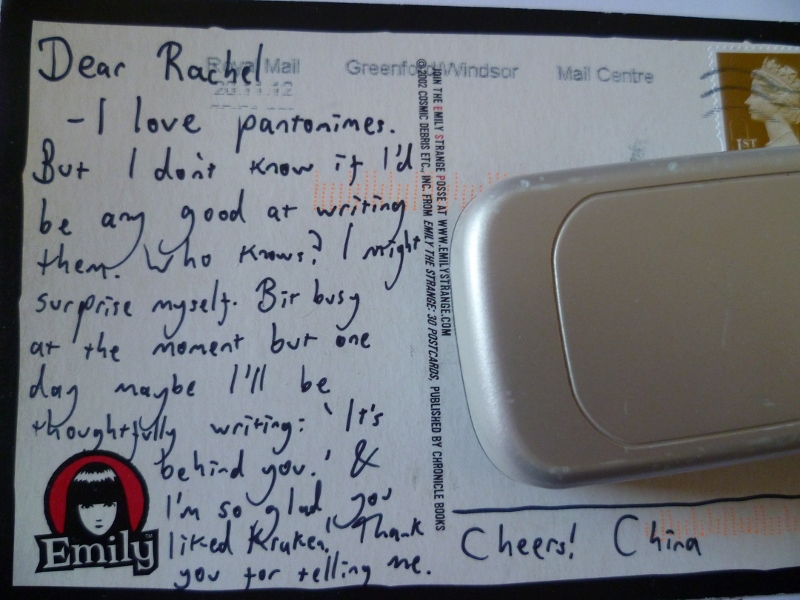 Royal Mail Greenford/Windsor Mail Centre
20.11.12
1ST
Dear Rachel
- I love pantomimes.
But I don't know if I'd
be any good at writing
them. Who knows? I might
surprise myself. Bit busy
at the moment but one
day maybe I'll be
thoughtfully writing: 'It's
behind you.' &
I'm so glad you
liked Kraken! Thank
you for telling me.
Cheers! China
Emily
JOIN THE EMILY STRANGE POSSE AT WWW.EMILYSTRANGE.COM
© 2002 COSMIC DEBRIS ETC., INC. FROM EMILY THE STRANGE: 30 POSTCARDS, PUBLISHED BY CHRONICLE BOOKS